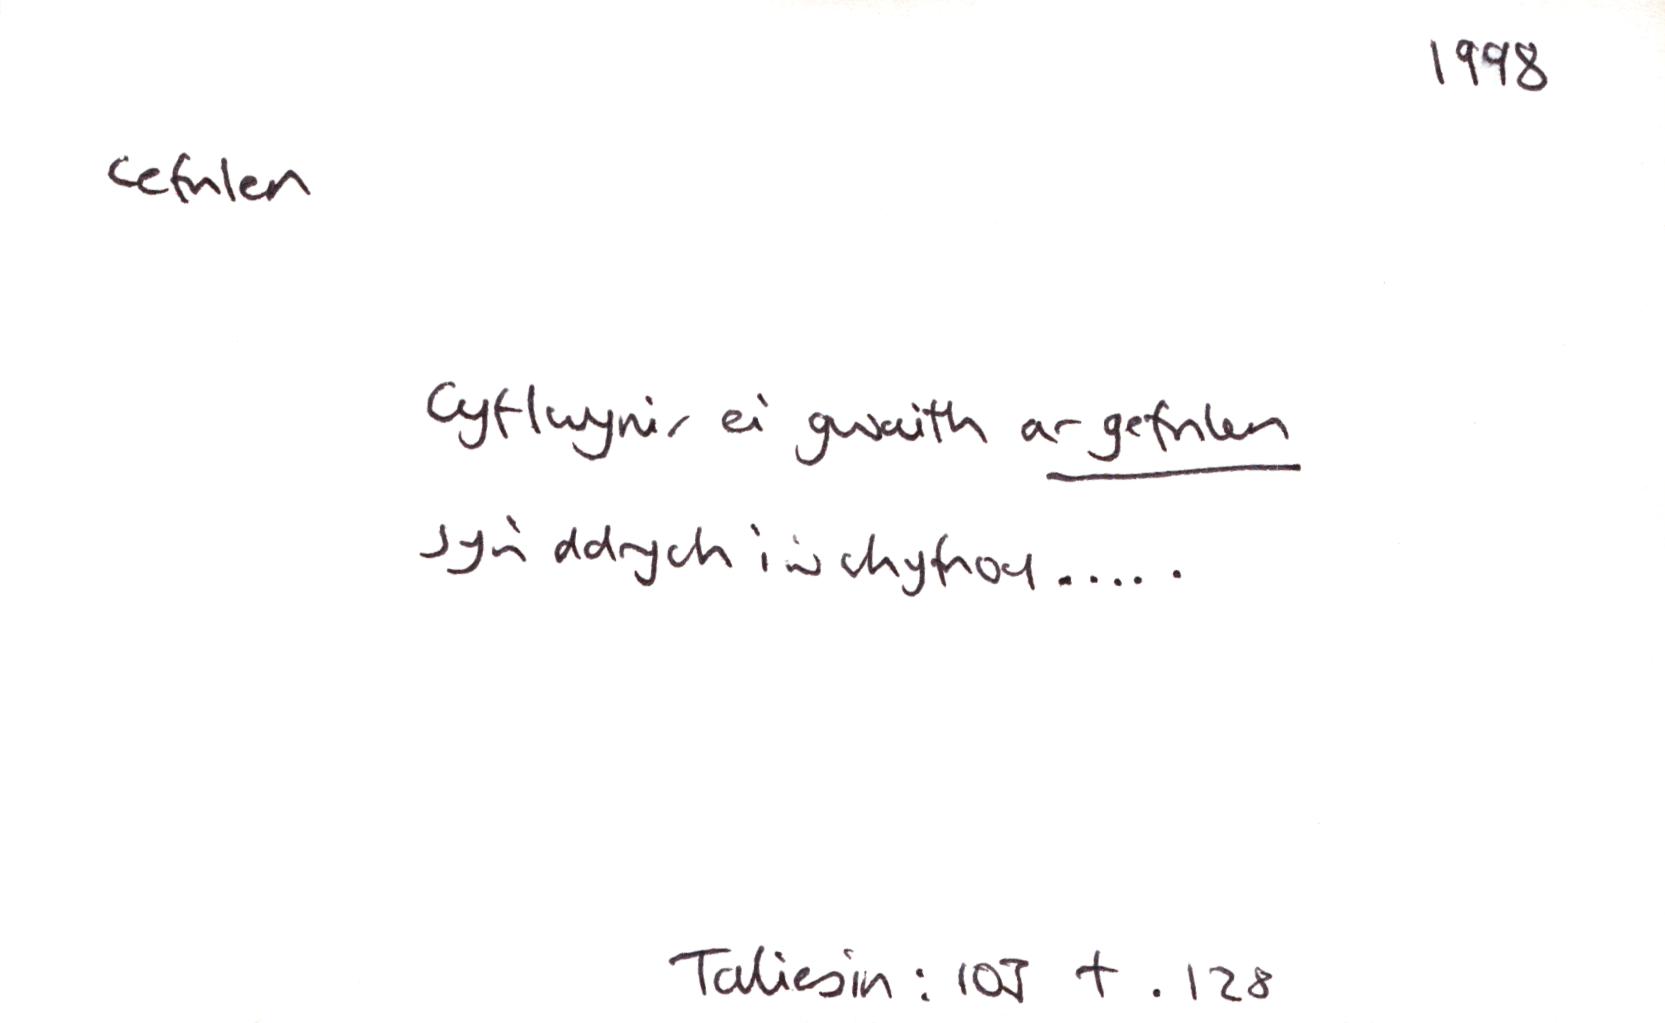 1998
cefnlen
Cyflwynir ei gwaith ar gefnlen
sy'n ddrych i'w chyfnod.....
Taliesin: 103 t. 128